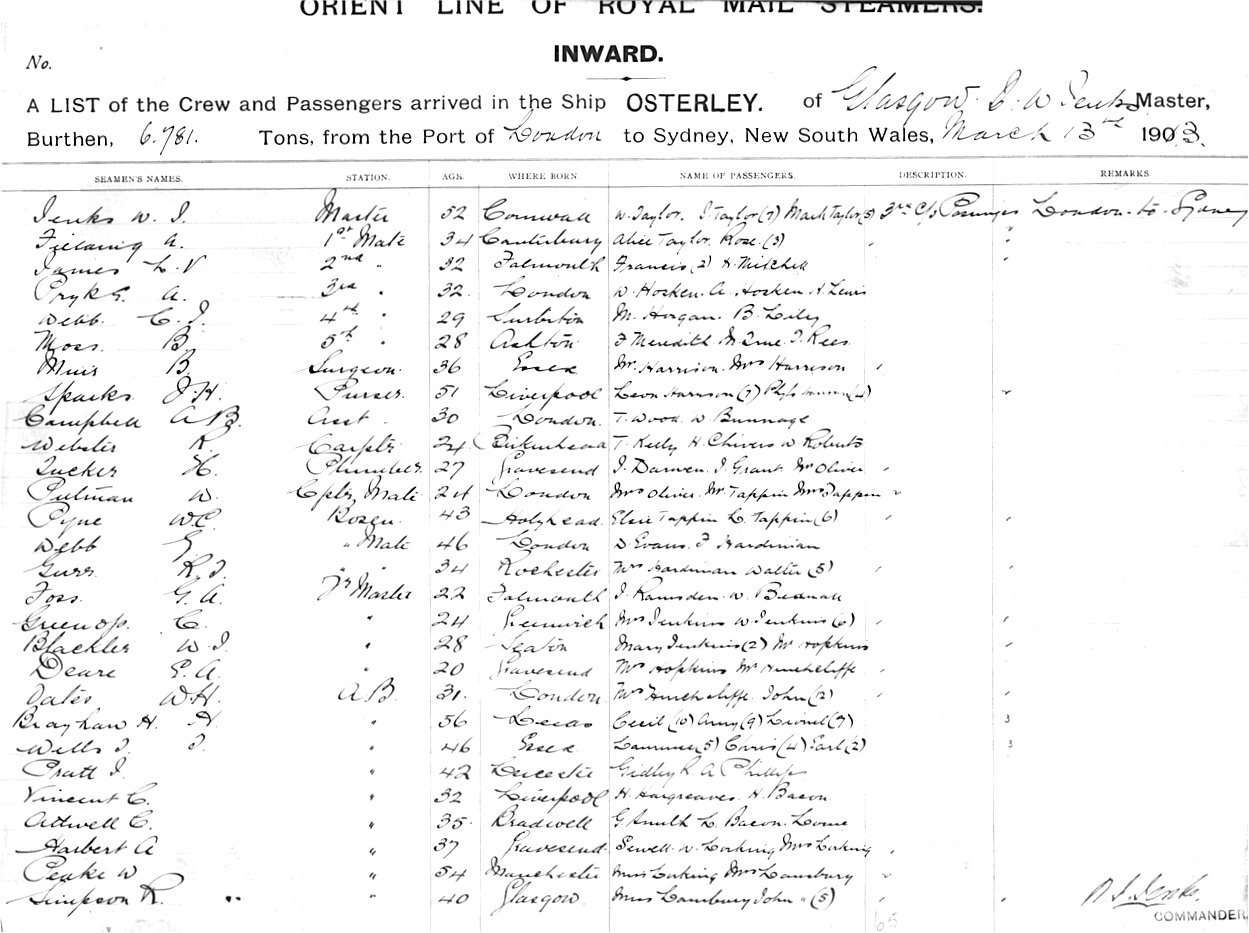 ORIENT LINE OF ROYAL MAIL STEAMERS.
INWARD.
No.
A LIST of the Crew and Passengers arrived in the Ship OSTERLEY. of Glasgow. Master,
Burthen, 6,781. Tons, from the Port of London to Sydney, New South Wales, March 13 1903.
SEAMEN'S NAMES. STATION. AGE. WHERE BORN. NAME OF PASSENGERS. DESCRIPTION. REMARKS.
Jenks W. J. Master 52 Cornwall W. Taylor. J. Taylor (7) Mark Taylor London to Sydney
A. 1st Mate 34 Canterbury Alice Taylor Rose (3)
James L. V 2nd " 32 Falmouth Francis (2) H. Mitchell
A. 3rd " 32. London W. Hosken. A. Hosken. A. Lewis
Webb. C. J. 4th " 29 Surbiton M. Horgan. B. Lily
Moss. B. 5th " 28 Ashton F Meredith J. Rees
Muir B. Surgeon. 36 Essex Mr. Harrison. Mrs Harrison
Sparks J. H. Purser. 51 Liverpool Leon Harrison (7)
Campbell A B. Asst. 30 London. T. Wood. W. Bunnage
Webster R. Carptr. 24. Birkenhead T. Kelly H. Chivers W Roberts
Tucker H. Plumber. 27 Gravesend J. Darwen. J. Grant. Mr Oliver
Pulman W. Cptrs Mate 24 London Mrs Oliver. Mr Tappin Mrs Tappin
Pyne WC. Bosen. 43 Holyhead. Elsie Tappin L. Tappin (6)
Webb G. " Mate 46 London D Evans. F Hardiman
Gurr. R. J. " " 34 Rochester Mrs Hardiman Walter (5)
Foss. G. A. Master 22 Falmouth J. Ramsden. W.
Greenop. C. " 24 Greenwich Mrs Jenkins W Jenkins (6)
Blackler W. J. " 28 Seaton Mary Jenkins (2) Mr Hopkins
Deare E. A. " 20 Gravesend Mrs Hopkins Mr Hinchcliffe
Oates W. H. A B. 31. London Mrs Hinchcliffe. John (2)
H. " 56 Leeds Cecil (10) Amy (9) Lionel (7)
Wells J. " 46 Essex Laurence (5) Chris (4) Earl (2)
Pratt J. " 42 Leicester Gidley A Phillips
Vincent C. " 32 Liverpool H. Hargreaves. H. Bacon
Attwell C. " 35. Bradwell G Smith L. Bacon.
Harbert A " 37 Gravesend Sewell. W. Corking Mrs Corking
Peake W " 54 Manchester Miss Corking Mrs Lansbury
Simpson R. " 40 Glasgow. Miss Lansbury John " (5)
65
COMMANDER.